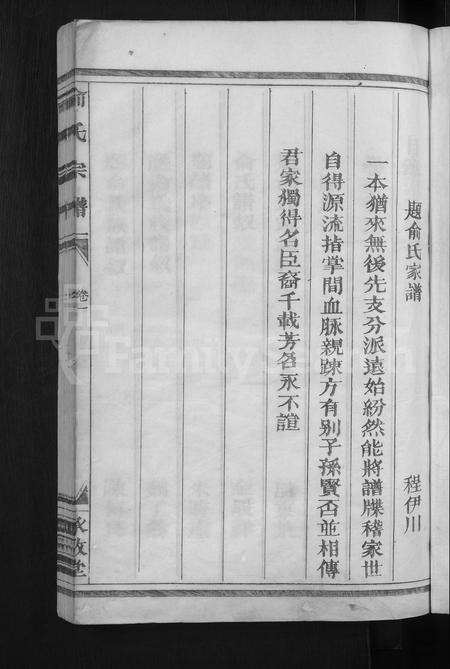 題俞氏家譜
程伊川
一本猶來無後先支分派遠始紛然能將譜牒稽家世
自得源流指掌間血脉親踈方有别子孫賢否並相傳
君家獨得名臣裔千載芳名永不諠
俞氏宗譜
卷一
敦堂